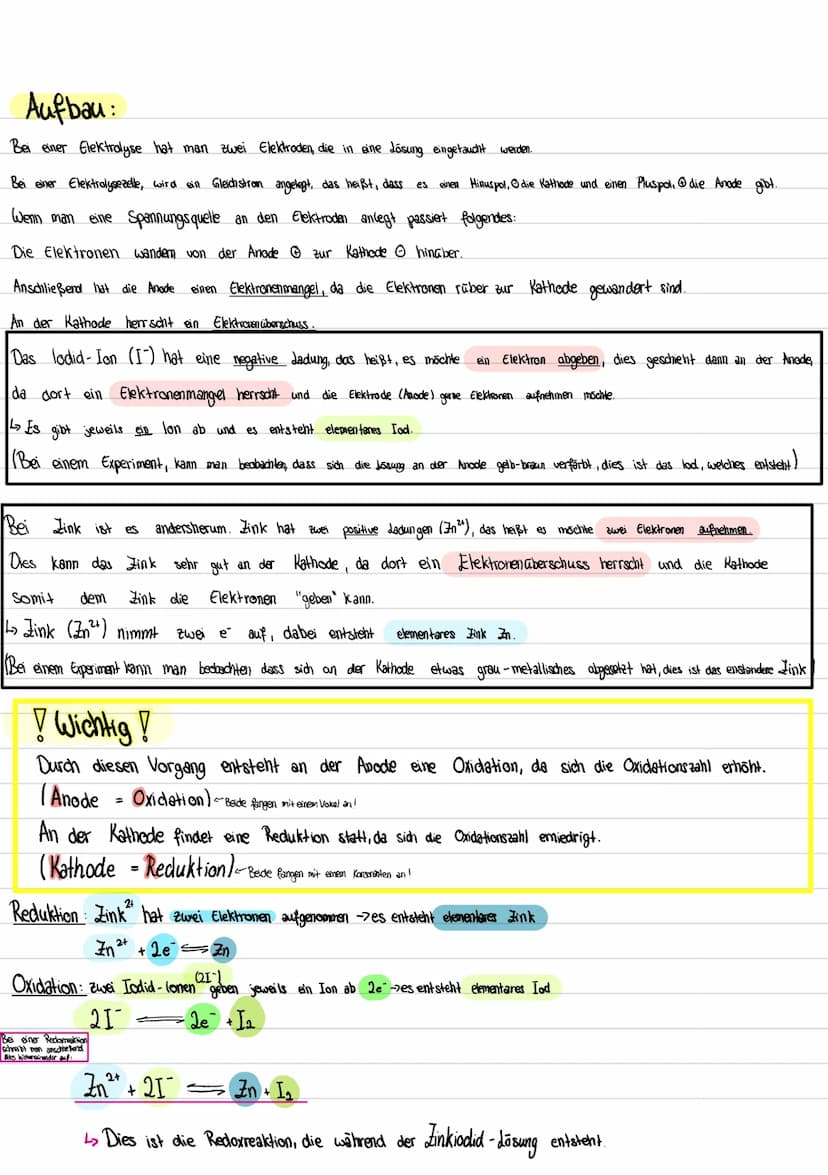 Aufbau:
Bei einer Elektrolyse hat man zwei Elektroden, die in eine Lösung eingetaucht werden.
Bei einer Elektrolysezelle, wird ein Gleichstrom angelegt, das heißt, dass es einen Minuspol, ⊖ die Kathode und einen Pluspol, ⊕ die Anode gibt.
Wenn man eine Spannungsquelle an den Elektroden anlegt passiert folgendes:
Die Elektronen wandern von der Anode ⊕ zur Kathode ⊖ hinüber.
Anschließend hat die Anode einen Elektronenmangel, da die Elektronen rüber zur Kathode gewandert sind.
An der Kathode herrscht ein Elektronenüberschuss.
Das Iodid-Ion (I⁻) hat eine negative Ladung, das heißt, es möchte ein Elektron abgeben, dies geschieht dann an der Anode,
da dort ein Elektronenmangel herrscht und die Elektrode (Anode) gerne Elektronen aufnehmen möchte.
↳ Es gibt jeweils ein Ion ab und es entsteht elementares Iod.
(Bei einem Experiment, kann man beobachten, dass sich die Lösung an der Anode gelb-braun verfärbt, dies ist das Iod, welches entsteht)
Bei Zink ist es andersherum. Zink hat zwei positive Ladungen (Zn²⁺), das heißt es möchte zwei Elektronen aufnehmen.
Dies kann das Zink sehr gut an der Kathode, da dort ein Elektronenüberschuss herrscht und die Kathode
somit dem Zink die Elektronen "geben" kann.
↳ Zink (Zn²⁺) nimmt zwei e⁻ auf, dabei entsteht elementares Zink Zn.
(Bei einem Experiment kann man beobachten dass sich an der Kathode etwas grau-metallisches abgesetzt hat, dies ist das enstandene Zink)
! Wichtig !
Durch diesen Vorgang entsteht an der Anode eine Oxidation, da sich die Oxidationszahl erhöht.
(Anode = Oxidation) ← Beide fangen mit einem Vokal an!
An der Kathode findet eine Reduktion statt, da sich die Oxidationszahl erniedrigt.
(Kathode = Reduktion) ← Beide fangen mit einem Konsonanten an!
Reduktion: Zink²⁺ hat zwei Elektronen aufgenommen → es entsteht elementares Zink
Zn²⁺ + 2e⁻ ⇌ Zn
Oxidation: zwei Iodid-Ionen (2I⁻) geben jeweils ein Ion ab 2e⁻ → es entsteht elementares Iod
2I⁻ ⇌ 2e⁻ + I₂
Bei einer Redoxreaktion
schreibt man anschließend
alles hintereinander auf:
Zn²⁺ + 2I⁻ ⇌ Zn + I₂
↳ Dies ist die Redoxreaktion, die während der Zinkiodid-Lösung entsteht.